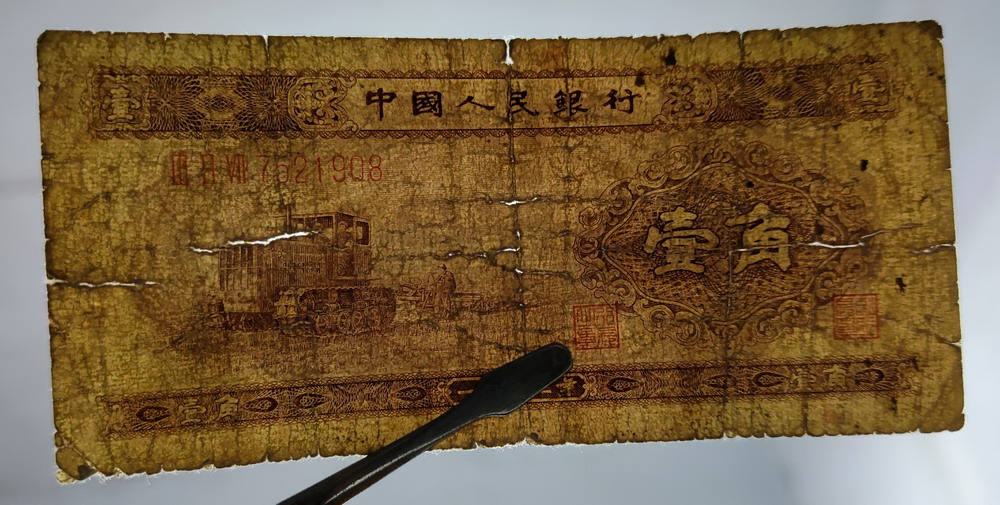 壹 中國人民銀行 壹
III II VIII 7521908
壹角
壹角 壹角